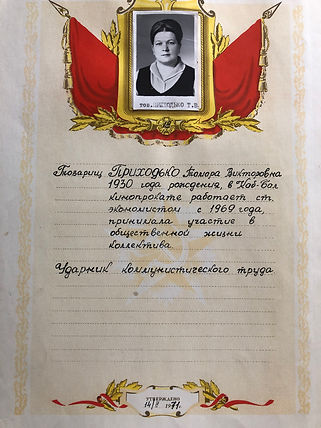 тов. ПРИХОДЬКО Т.В.
Товарищ ПРИХОДЬКО Тамара Викторовна
1930 года рождения, в Каб-Бал
кинопрокате работает ст.
экономистом с 1969 года,
принимала участие в
общественной жизни
коллектива.
Ударник коммунистического труда
УТВЕРЖДЕНО
1971.